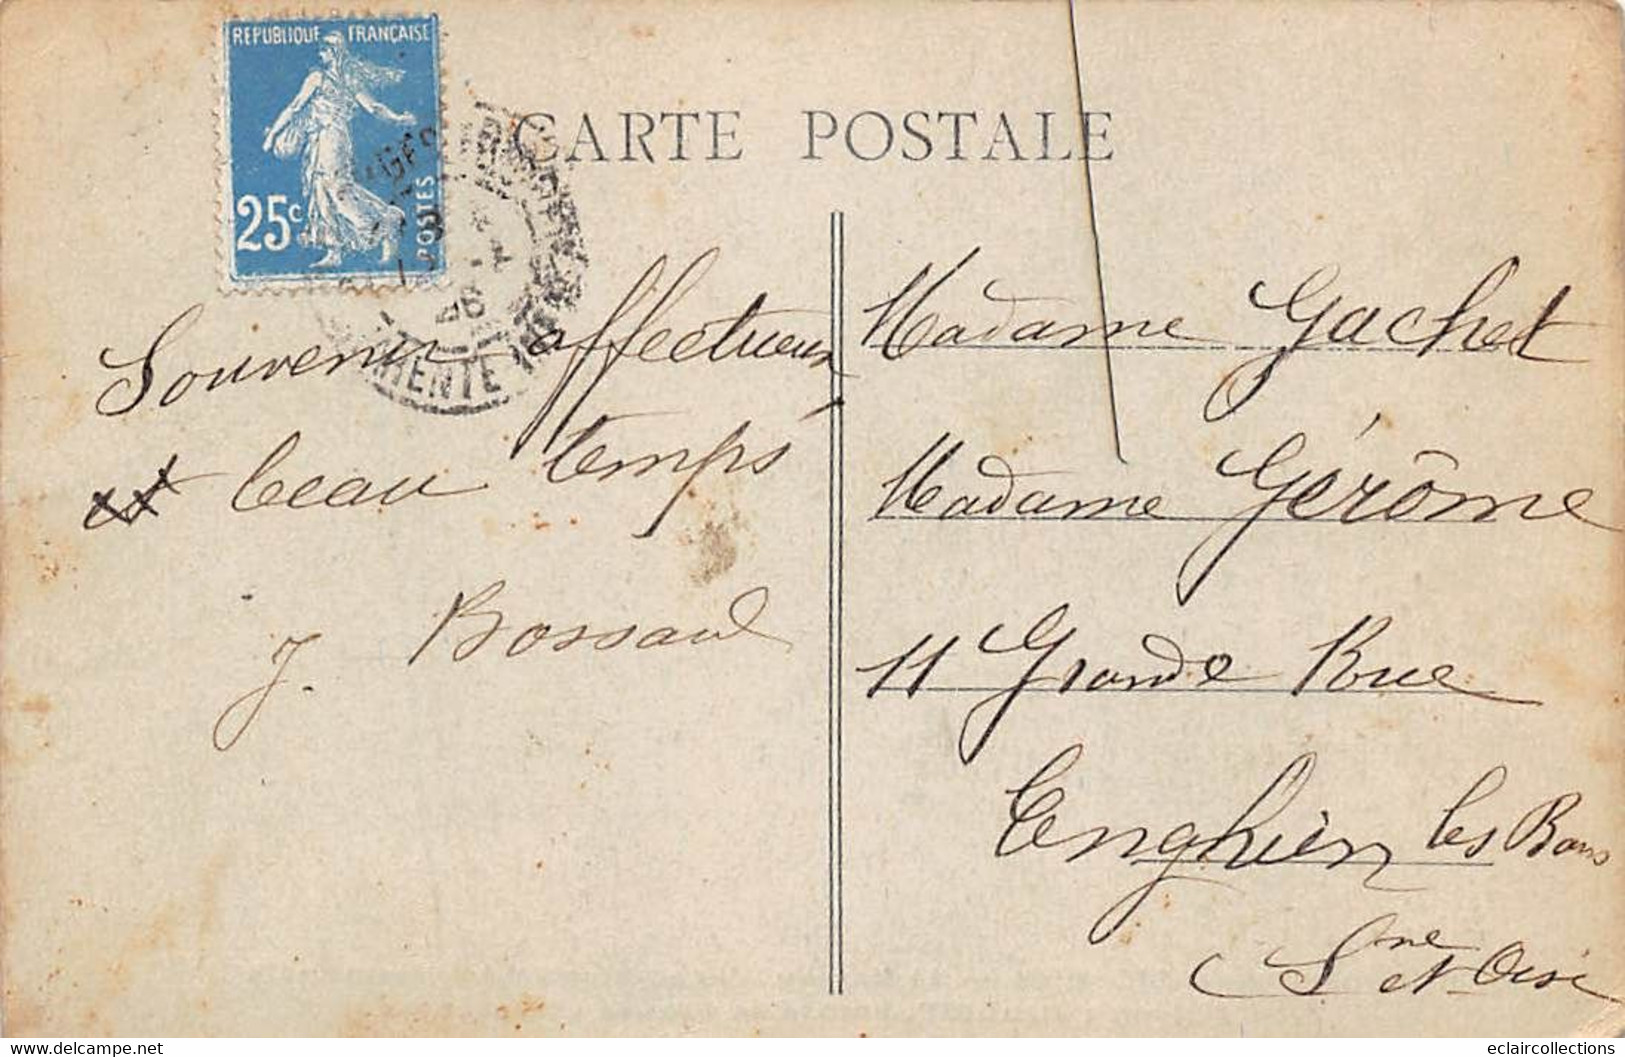 REPUBLIQUE FRANÇAISE
25c
POSTES
CARTE POSTALE
Souvenir affectueux
et beau temps
J. Bossard
Madame Gachet
Madame Gérôme
11 Grande Rue
Enghien les Bains
Sne et Oise
delcampe.net
eclaircollections